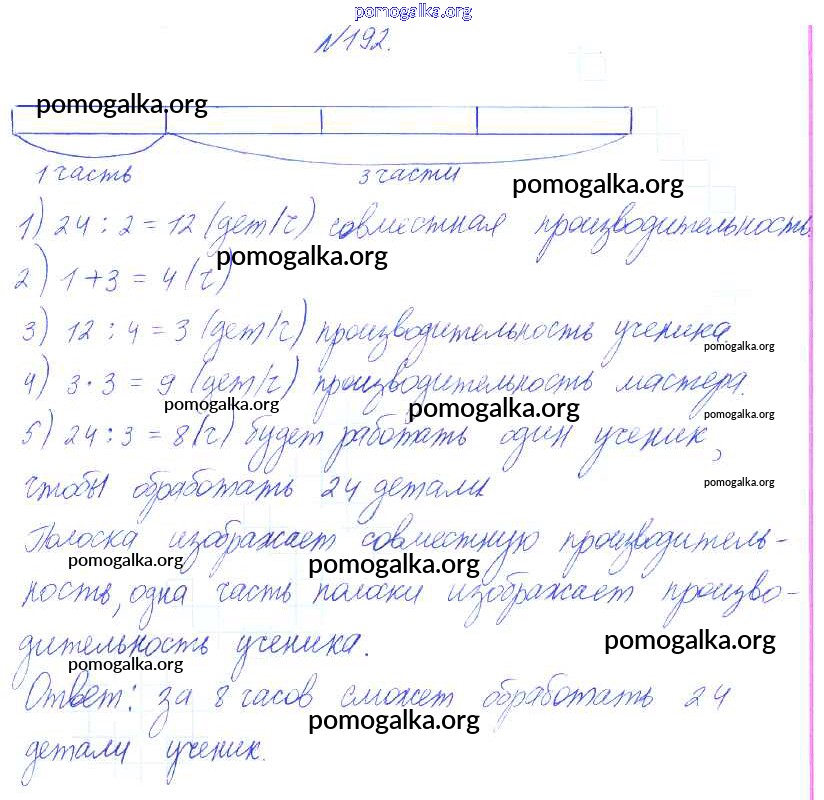 pomogalka.org
№192.
pomogalka.org
1 часть 3 части
pomogalka.org
1) 24 : 2 = 12 (дет/ч) совместная производительность.
pomogalka.org
2) 1+3 = 4 (ч)
3) 12 : 4 = 3 (дет/ч) производительность ученика.
pomogalka.org
4) 3 · 3 = 9 (дет/ч) производительность мастера.
pomogalka.org pomogalka.org pomogalka.org
5) 24 : 3 = 8 (ч) будет работать один ученик,
чтобы обработать 24 детали
pomogalka.org
Полоска изображает совместную производитель-
pomogalka.org pomogalka.org pomogalka.org
ность, одна часть полоски изображает произво-
дительность ученика.
pomogalka.org
pomogalka.org
Ответ: за 8 часов сможет обработать 24
pomogalka.org
детали ученик.